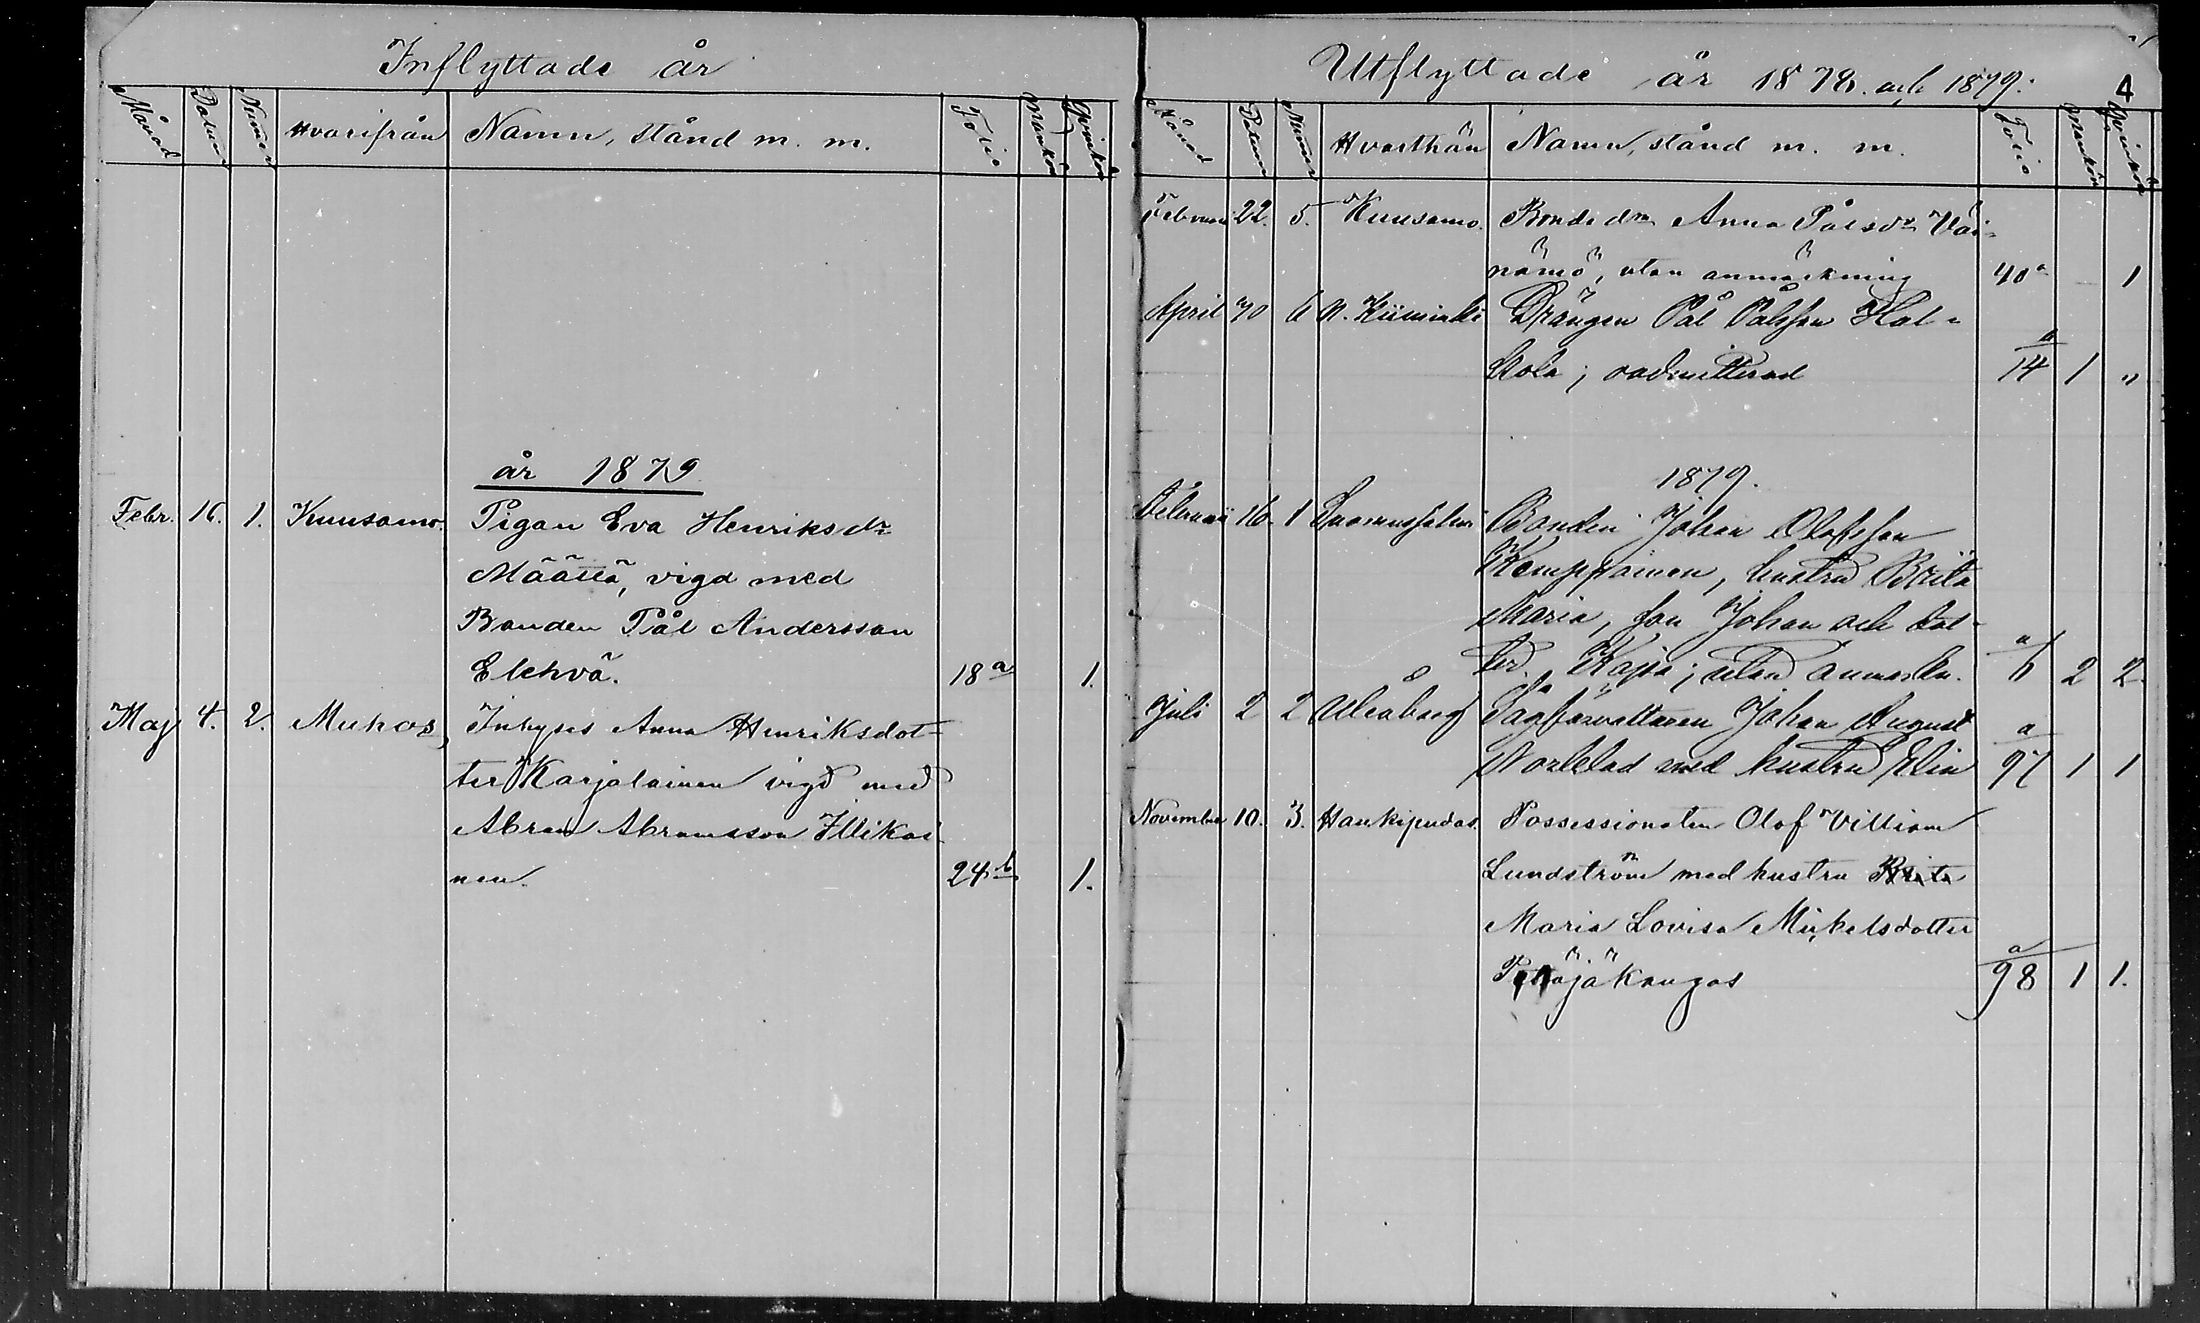 Inflyttade år
Månad Datum Numer Hvarifrån Namn, stånd m. m. Folio Mankön Qvinkön
år 1879
Febr. 16. 1. Kuusamo. Pigan Eva Henriksdr
Määttä, vigd med
Bonden Pål Andersson
Elehvä. 18a 1.
Maj 4. 2. Muhos, Inhyses Anna Henriksdot-
ter Karjalainen vigd med
Abram Abramsson Illikai
nen. 24b 1.
Utflyttade år 1878. och 1879.
4
Månad Datum Numer Hvarthän Namn, stånd m. m. Folio Mankön Qvinkön
Februari 22. 5. Kuusamo. Bondedn Anna Pålsdr Väi-
nämö, utan anmärkning 40a 1
April 30 6 N. Kiiminki Drängen Pål Pålsson Hal-
kola; oadmitterad a 14 1 "
1879.
Februari 16 1 Suomussalmi Bonden Johan Olofsson
Kemppainen, hustru Brita
Maria, son Johan och dot-
ter Kajsa; utan anmärkn. a 6 2 2
Juli 2 2 Uleåborg Sågförvaltaren Johan August
med hustru Elin a 97 1 1
November 10. 3. Haukipudas. Possessionaten Olof Villiam
Lundström med hustru Brita
Maria Lovisa Mickelsdotter
Petäjäkangas a 98 1 1.